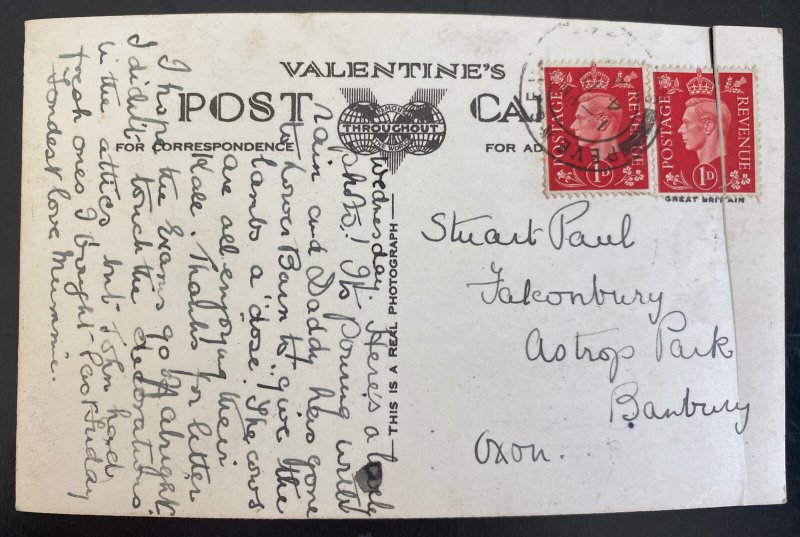 VALENTINE'S
POST CA
FAMOUS
THROUGHOUT
THE WORLD
FOR CORRESPONDENCE
FOR AD
THIS IS A REAL PHOTOGRAPH
POSTAGE REVENUE
1D
POSTAGE REVENUE
1D
GREAT BRITAIN
PEVEN
Stuart Paul
Falconbury
Astrop Park
Banbury
Oxon.
Wednesday. Here's a lovely
photo! Its pouring with
rain and Daddy has gone
to Lower Barn to give the
lambs a "dose". The cows
are all enjoying their
Kale. Thanks for letter
I hope the Exams go off alright
I didn't touch the decorations
in the attics but John had
fresh ones I bought last Friday
Fondest love Mummie.